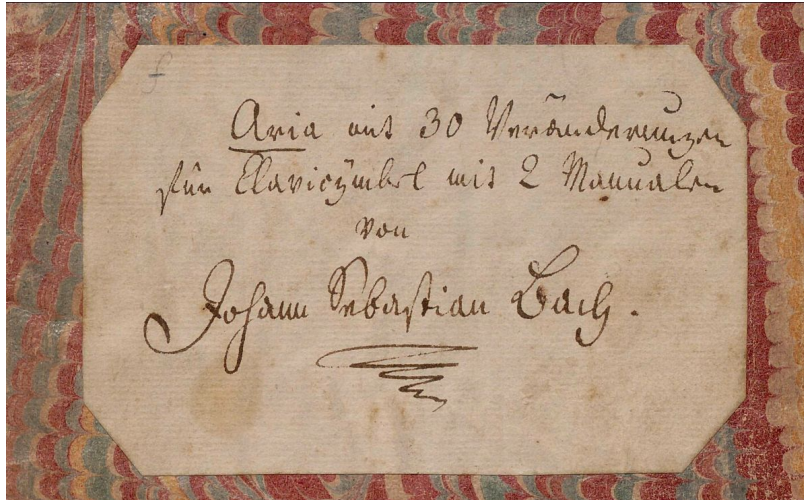 Aria mit 30 Veränderungen
für Clavicÿmbel mit 2 Manualen
von
Johann Sebastian Bach.